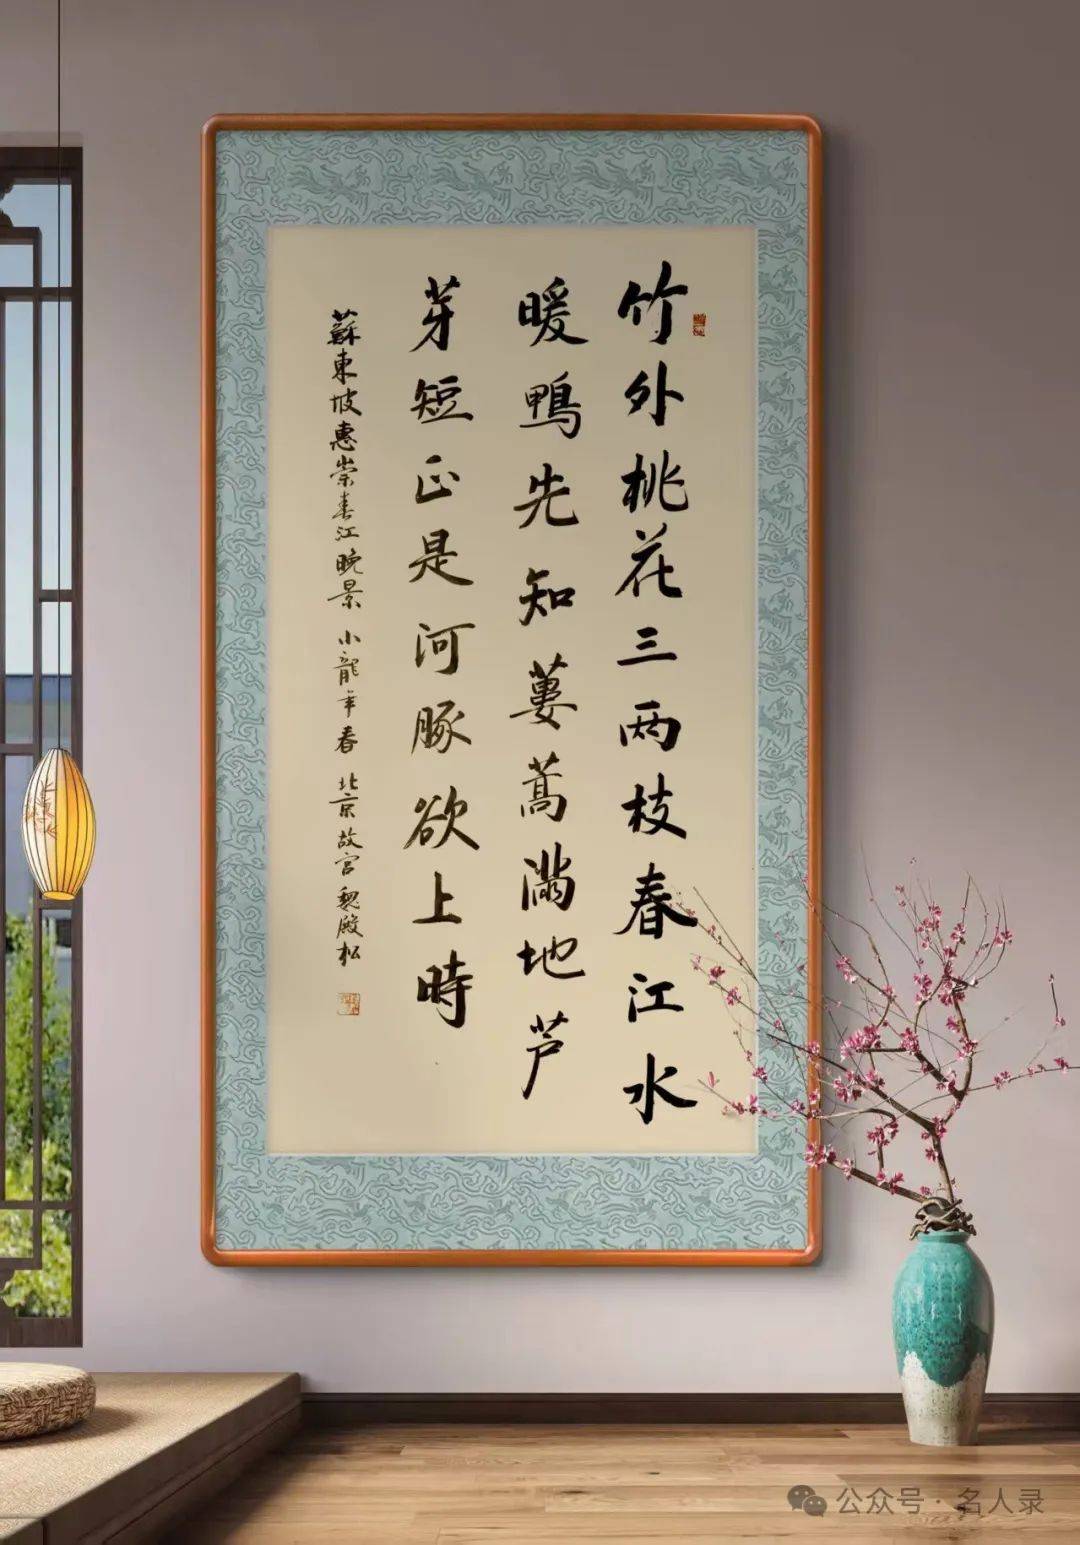 竹外桃花三两枝春江水
暖鴨先知蔞蒿滿地芦
芽短正是河豚欲上時
蘇東坡惠崇春江晚景 小龍年春 北京故宫魏殿松
公众号·名人录